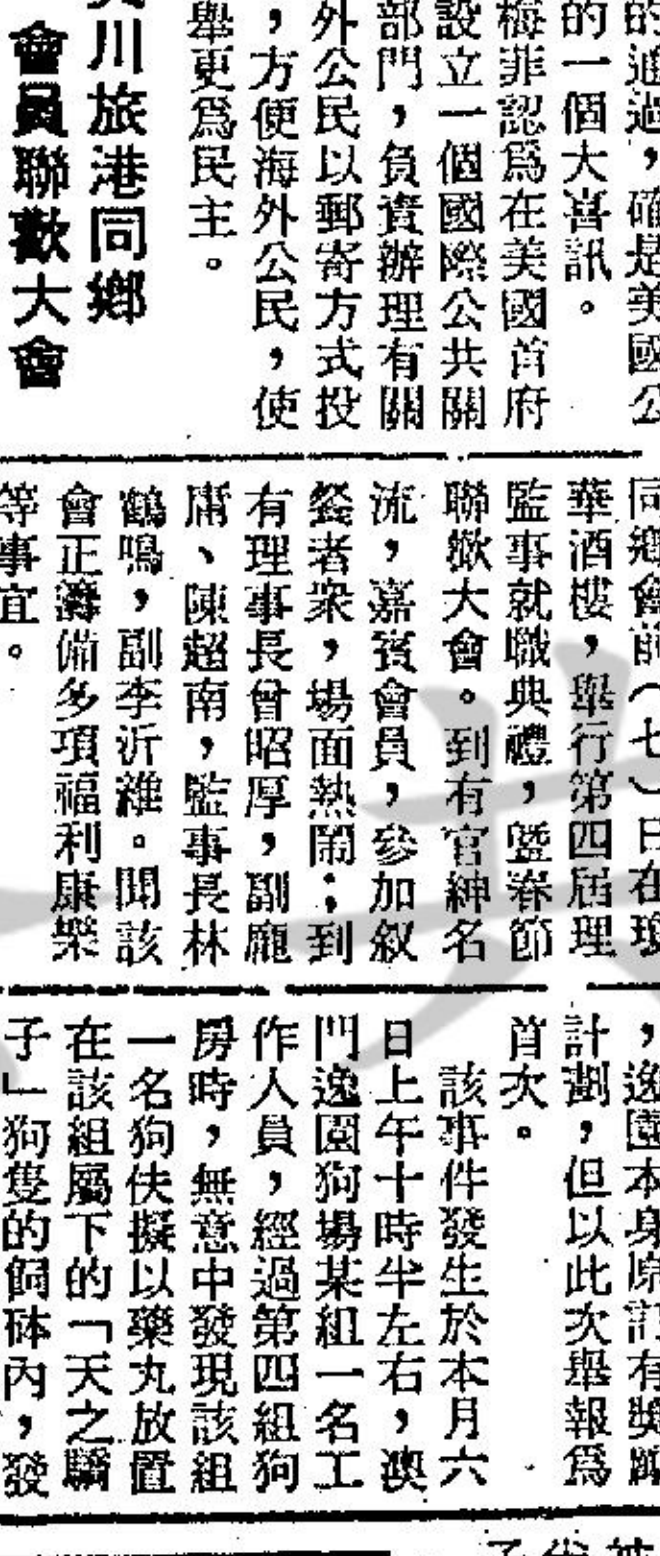 的通過，確是美國公
的一個大喜訊。
梅菲認爲在美國首府
設立一個國際公共關
部門，負責辦理有關
外公民以郵寄方式投
，方便海外公民，使
舉更爲民主。
川旅港同鄉
會員聯歡大會
同鄉會前（七）日在瓊
華酒樓，舉行第四屆理
監事就職典禮，曁春節
聯歡大會。到有官紳名
流，嘉賓會員，參加叙
餐者衆，場面熱鬧；到
有理事長曾昭厚，副龐
庸、陳超南，監事長林
鶴鳴，副李沂雒。聞該
會正籌備多項福利康樂
等事宜。
，逸園本身原訂有獎
計劃，但以此次舉報爲
首次。
該事件發生於本月六
日上午十時半左右，澳
門逸園狗場某組一名工
作人員，經過第四組狗
房時，無意中發現該組
一名狗伕擬以藥丸放置
在該組屬下的「天之驕
子」狗隻的飼砵內，發